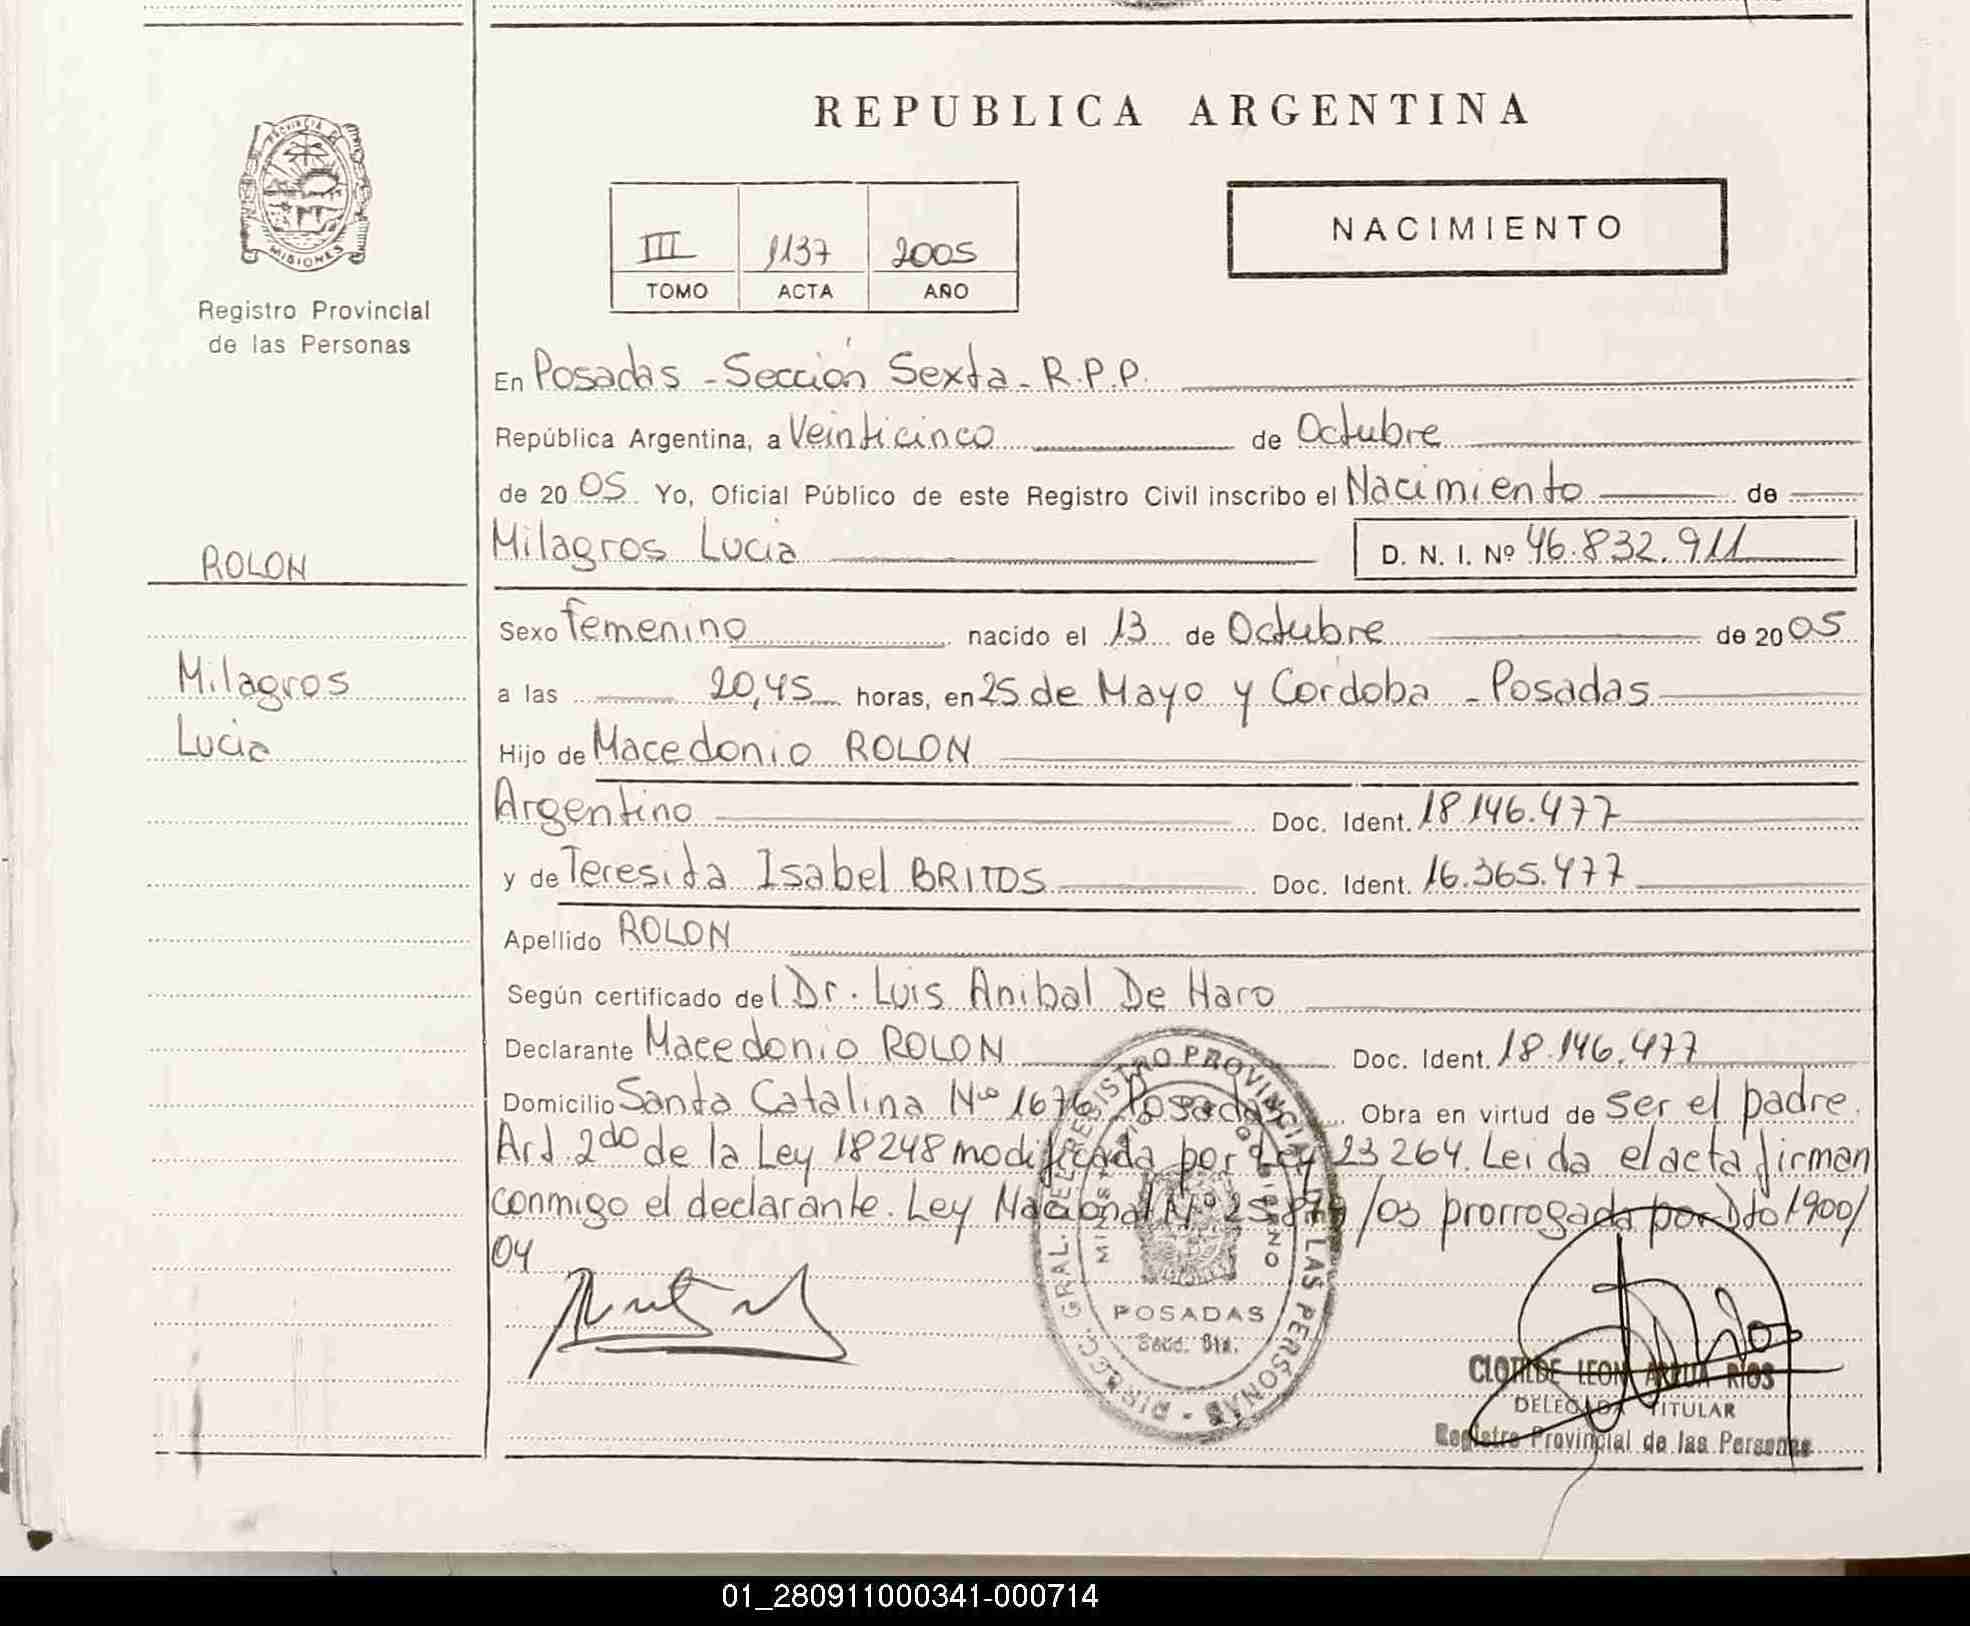 REPUBLICA ARGENTINA
PROVINCIA DE MISIONES
Registro Provincial
de las Personas
NACIMIENTO
III 1137 2005
TOMO ACTA AÑO
En Posadas - Sección Sexta - R.P.P.
República Argentina, a Veinticinco de Octubre
de 2005 Yo, Oficial Público de este Registro Civil inscribo el Nacimiento de
Milagros Lucia D. N. I. Nº 46.832.911
ROLON
Milagros
Lucia
Sexo Femenino nacido el 13 de Octubre de 2005
a las 20,45 horas, en 25 de Mayo y Córdoba - Posadas
Hijo de Macedonio ROLON
Argentino Doc. Ident. 18.146.477
y de Teresita Isabel BRITOS Doc. Ident. 16.365.477
Apellido ROLON
Según certificado del Dr. Luis Anibal De Haro
Declarante Macedonio ROLON Doc. Ident. 18.146.477
Domicilio Santa Catalina Nº 1676 Posadas Obra en virtud de ser el padre.
Art. 2do de la Ley 18248 modificada por Ley 23264. Leida el acta firman
conmigo el declarante. Ley Nacional Nº /03 prorrogada por Dto 1900/
04
DIRECC. GRAL. DEL REGISTRO PROVINCIAL DE LAS PERSONAS
MINISTERIO DE GOBIERNO
POSADAS
CLOTILDE LEON ARZUA RIOS
DELEGADA TITULAR
Registro Provincial de las Personas
01_280911000341-000714